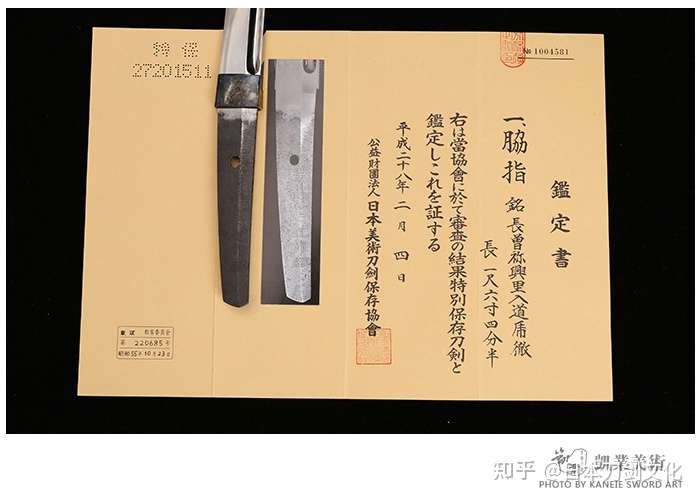 No 1004581
鑑定書
一、脇指 銘 長曽祢興里入道乕徹
長 一尺六寸四分半
右は當協會に於て審査の結果特別保存刀劍と
鑑定しこれを証する
平成二十八年二月四日
公益財團法人 日本美術刀劍保存協會
特 保
27201511
東京 教育委員会
第 220685 号
昭和 55年 10月 23日
知乎 @日本刀剑文化
PHOTO BY KANETE SWORD ART